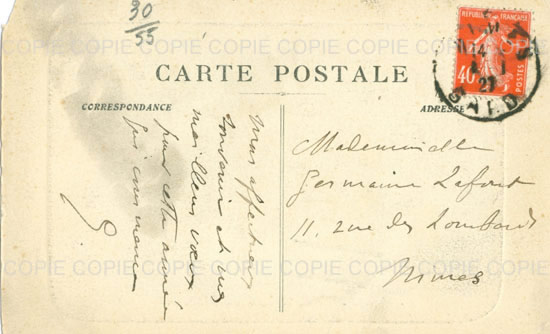 30
55
RÉPUBLIQUE FRANÇAISE
40
POSTES
14
27
GARD
COPIE COPIE COPIE COPIE COPIE COPIE
CARTE POSTALE
CORRESPONDANCE
ADRESSE
COPIE COPIE COPIE COPIE COPIE COPIE
Mademoiselle
Germaine Lafont
11, rue des Lombards
Nimes
Mon affectueux
souvenir et mes
meilleurs vœux
pour cette année
qui commence
G
COPIE COPIE COPIE COPIE COPIE COPIE